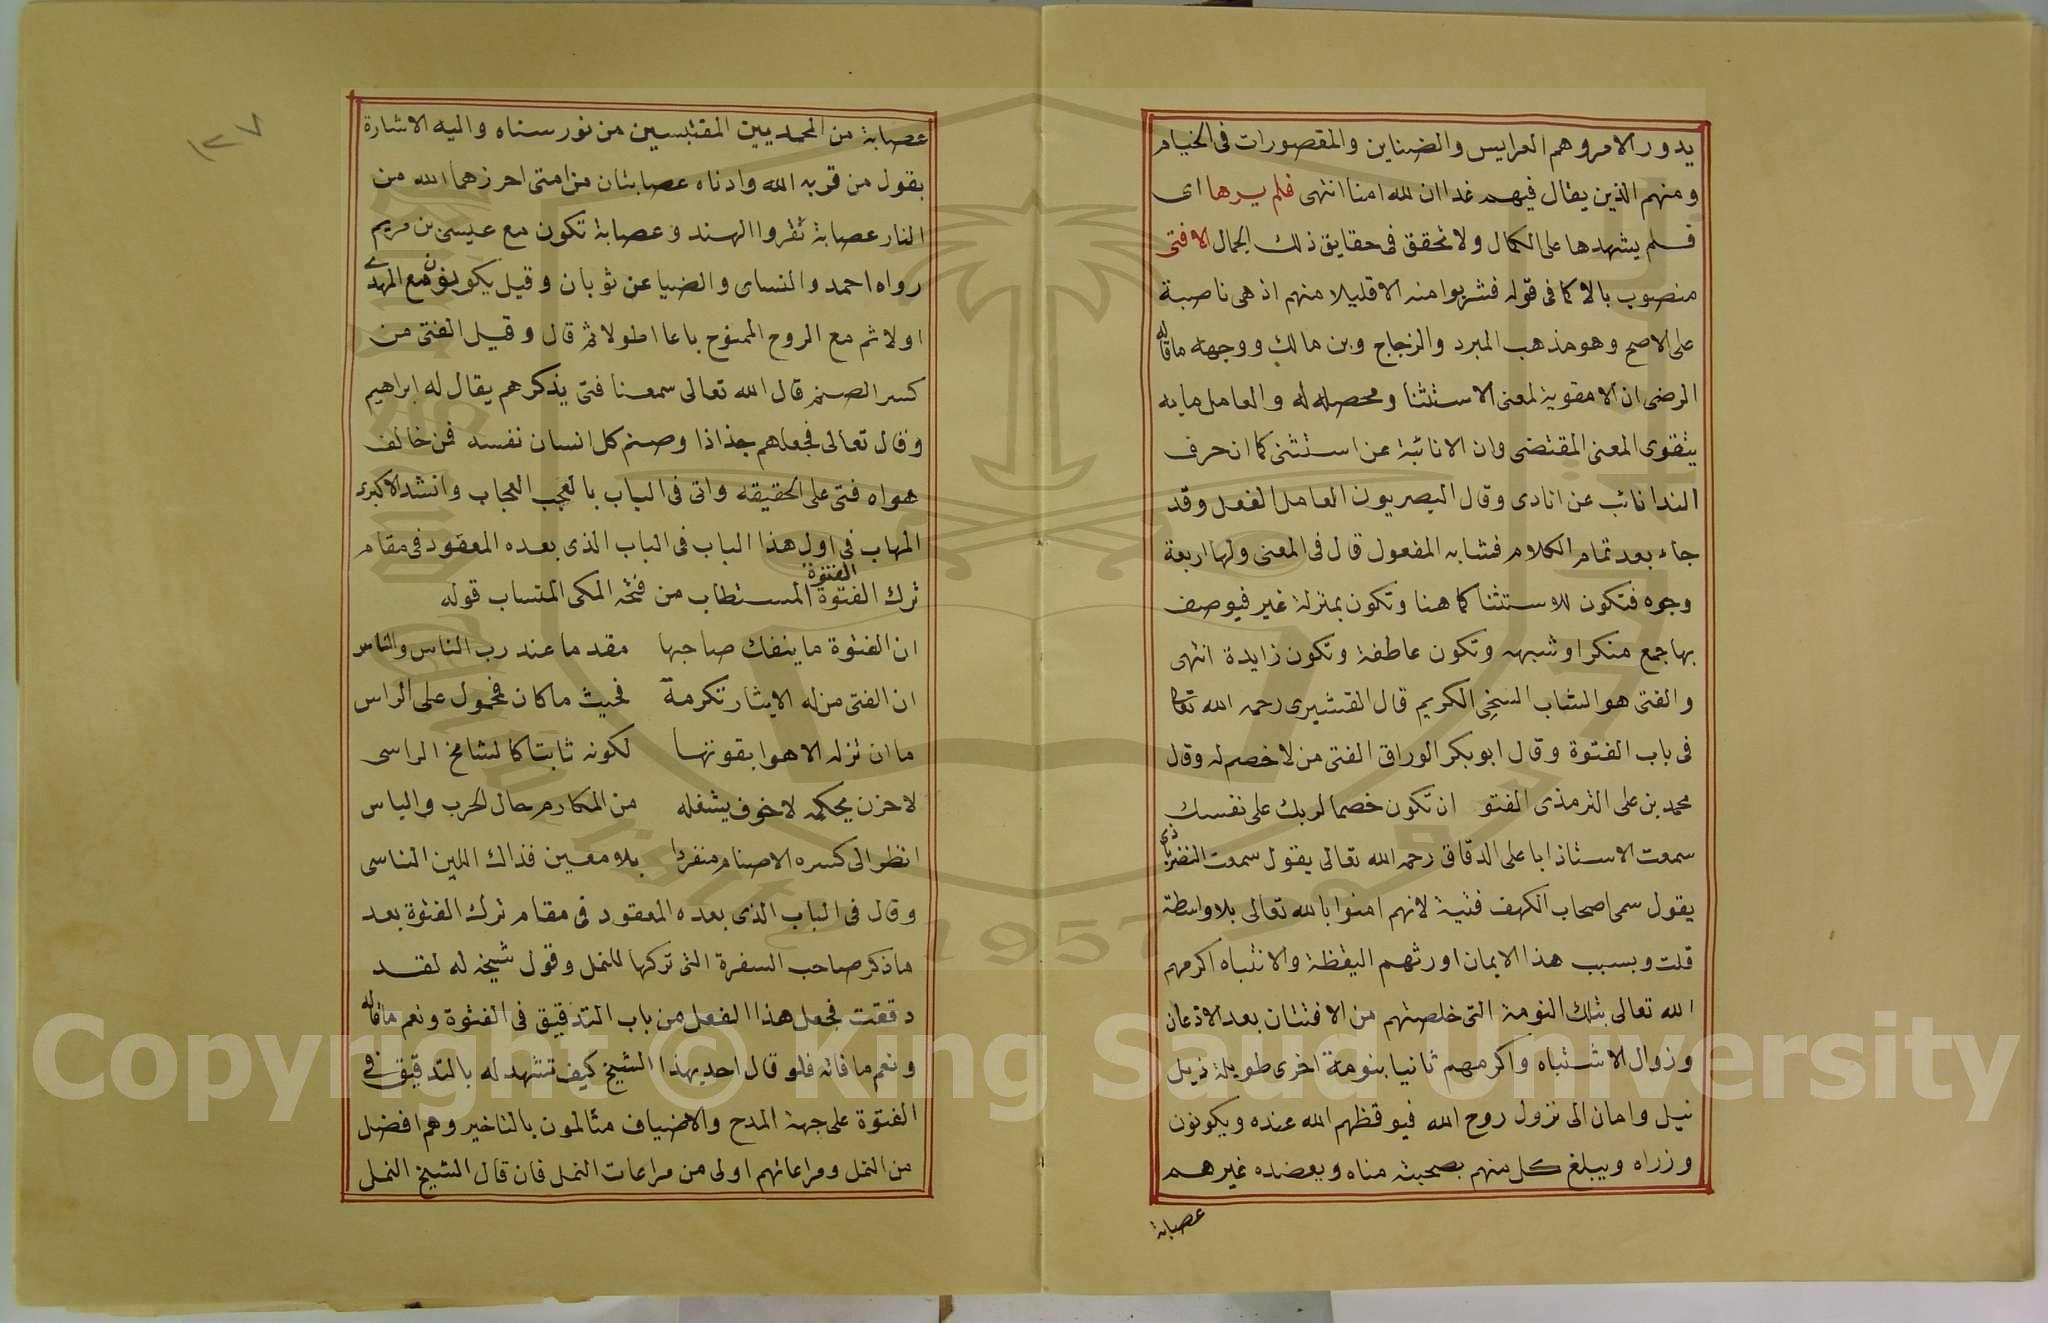 يدور الامر وهم العرايس والضناين والمقصورات فى الخيام
ومنهم الذين يقال فيهم غدا ان لله امنا انتهى فلم يرها اى
فلم يشهدها على الكمال ولا تحقق فى حقايق ذلك الجمال الا فتى
منصوب بالا كما فى قوله فشربوا منه الا قليلا منهم اذ هى ناصبة
على الاصح وهو مذهب المبرد والزجاج وبن مالك ووجهه ما قاله
الرضى ان الا مقوية لمعنى الاستثنا ومحصله له والعامل ما به
يتقوى المعنى المقتضى وان الا نائبة عن استثنى كما ان حرف
الندا نائب عن انادى وقال البصريون العامل الفعل وقد
جاء بعد تمام الكلام فشابه المفعول قال فى المعنى ولها اربعة
وجوه فتكون للاستثنا كما هنا وتكون بمنزلة غير فيوصف
بها جمع منكر او شبهه وتكون عاطفة وتكون زايدة انتهى
والفتى هو الشاب السخى الكريم قال القشيرى رحمه الله تعالى
فى باب الفتوة وقال ابو بكر الوراق الفتى من لا خصم له وقال
محمد بن على الترمذى الفتو ان تكون خصما لربك على نفسك
سمعت الاستاذ ابا على الدقاق رحمه الله تعالى يقول سمعت النضراباذى
يقول سمى اصحاب الكهف فتية لانهم امنوا بالله تعالى بلا واسطة
قلت وبسبب هذا الايمان اورثهم اليقظة والانتباه اكرمهم
الله تعالى بتلك النومة التى خلصتهم من الافتتان بعد الاذعان
وزوال الاشتباه واكرمهم ثانيا بنومة اخرى طويلة ذيل
نيل وامان الى نزول روح الله فيوقظهم الله عنده ويكونون
وزراه ويبلغ كل منهم بصحبته مناه ويعضده غيرهم
عصابة
١٢٧
عصابة من المحمديين المقتبسين من نور سناه واليه الاشارة
بقول من قربه الله وادناه عصابتان من امتى احرزهما الله من
النار عصابة تغروا الهند وعصابة تكون مع عيسى بن مريم
رواه احمد والنساى والضيا عن ثوبان وقيل يكونون مع المهدى
اولا ثم مع الروح الممنوح باعا اطولا ثم قال وقيل الفتى من
كسر الصنم قال الله تعالى سمعنا فتى يذكرهم يقال له ابراهيم
وقال تعالى فجعلهم جذاذا وصنم كل انسان نفسه فمن خالف
هواه فتى على الحقيقه واتى فى الباب بالعجب العجاب وانشد الاكبرى
المهاب فى اول هذا الباب فى الباب الذى بعده المعقود فى مقام
ترك الفتوة الفتوة المستطاب من فتحه المكى المنساب قوله
ان الفتوة ما ينفك صاحبها مقدما عند رب الناس والناس
ان الفتى من له الايثار تكرمة فحيث ما كان فمحمول على الراس
ما ان تزله الاهوا بقوتها لكونه ثابتا كالشامخ الراسى
لا حزن يحكمه لا خوف يشغله من المكارم حال الحرب والباس
انظر الى كسره الاصنام منفردا بلا معين فذاك اللين الناسى
وقال فى الباب الذى بعده المعقود فى مقام ترك الفتوة بعد
ما ذكر صاحب السفرة التى تركها للنمل وقول شيخه له لقد
دققت فجعل هذا الفعل من باب التدقيق فى الفتوة ونعم ما قاله
ونعم ما فاته فلو قال احد بهذا الشيخ كيف تشهد له بالتدقيق فى
الفتوة على جهة المدح والاضياف متالمون بالتاخير وهم افضل
من النمل ومراعاتهم اولى من مراعات النمل فان قال الشيخ النمل
1957
Copyright © King Saud University